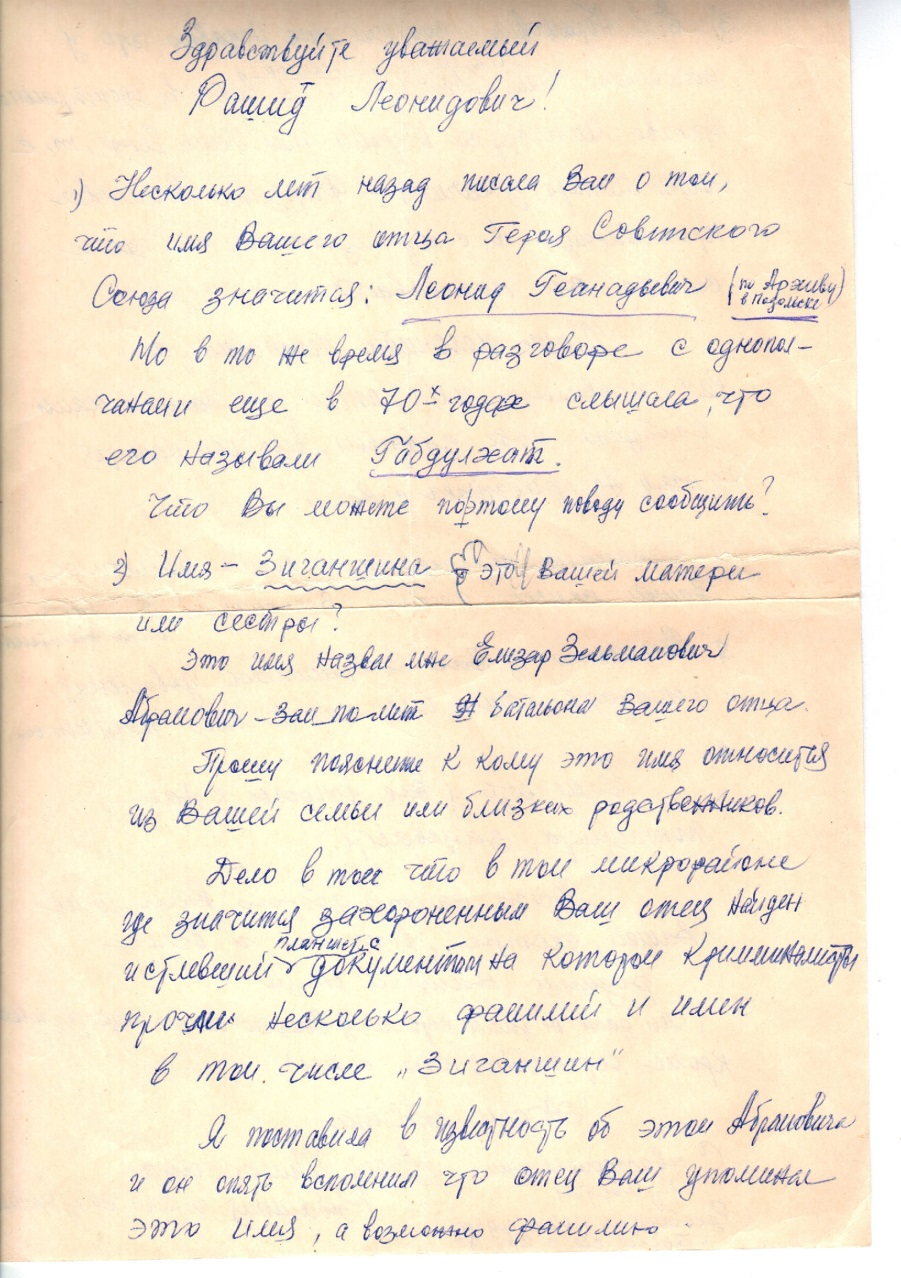 Здравствуйте уважаемый
Рашид Леонидович!
1) Несколько лет назад писала Вам о том,
что имя Вашего отца Героя Советского
Союза значится: Леонид Генадьевич (по Архиву
в Подольске)
Но в то же время в разговоре с однопол-
чанами еще в 70х годах слышала, что
его называли Габдулхат.
Что Вы можете поэтому поводу сообщить?
2) Имя – Зиганшина это Вашей матери
или сестры?
Это имя назвал мне Елизар Зельманович
Абрамович – зам по лит батальона Вашего отца.
Прошу поясните к кому это имя относится
из Вашей семьи или близких родственников.
Дело в том что в том микрорайоне
где значится захороненным Ваш отец найден
истлевший планшет с документом на котором криминалисты
прочли несколько фамилий и имен
в том числе „Зиганшин"
Я поставила в известность об этом Абрамовича
и он опять вспомнил что отец Ваш упоминал
это имя, а возможно фамилию.